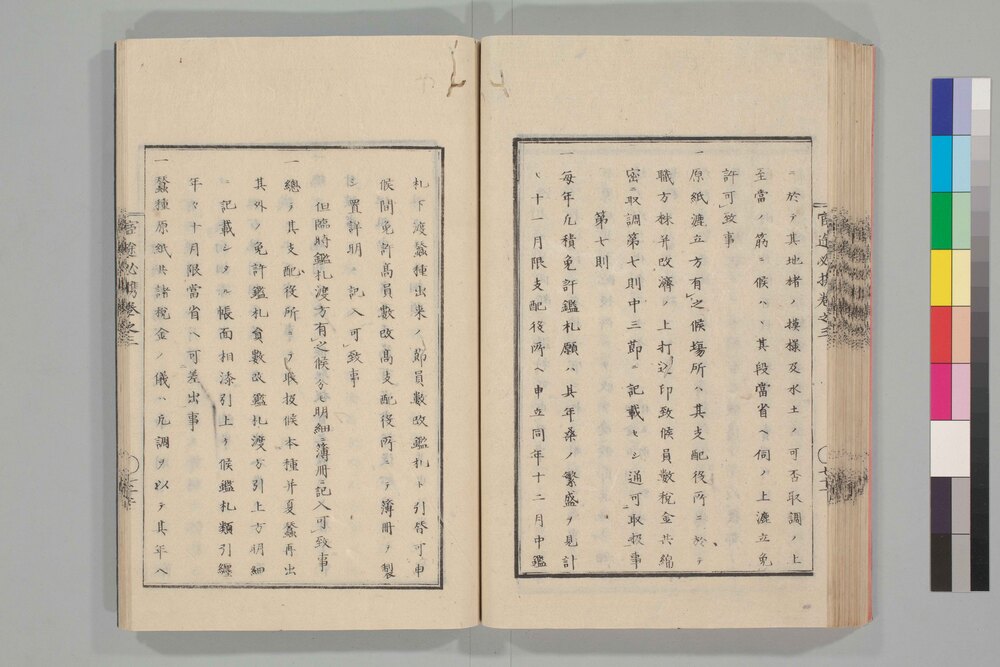 ニ於テ其地楮ノ模様及水土ノ可否取調ノ上
至當ノ筋ニ候ハヽ其段當省ヘ伺ノ上漉立免
許可致事
一原紙漉立方有之候場所ハ其支配役所ニ於テ
職方株并改濟ノ上打込印致候員數税金共綿
密ニ取調第七則中三節ニ記載セシ通可取扱事
第七則
一毎年凡積免許鑑札願ハ其年桑ノ繁盛ヲ見計
ヒ十一月限支配役所ヘ申立同年十二月中鑑
札下渡蠶種出来ノ節員數改鑑札ト引替可申
候間免許髙員數改髙支配役所ニテ簿冊ヲ製
シ置詳明ニ記入可致事
但臨時鑑札渡方有之候分モ明細ニ簿冊ニ記入可致事
一總テ其支配役所ニテ取扱候本種并夏蠶再出
其外ノ免許鑑札員數改鑑札渡方引上方明細
ニ記載シタル帳面相添引上ケ候鑑札類引纒
年々十月限當省ヘ可差出事
一蠶種原紙共諸税金ノ儀ハ凡調ヲ以テ其年八
官途必携巻之三
官途必携巻之三